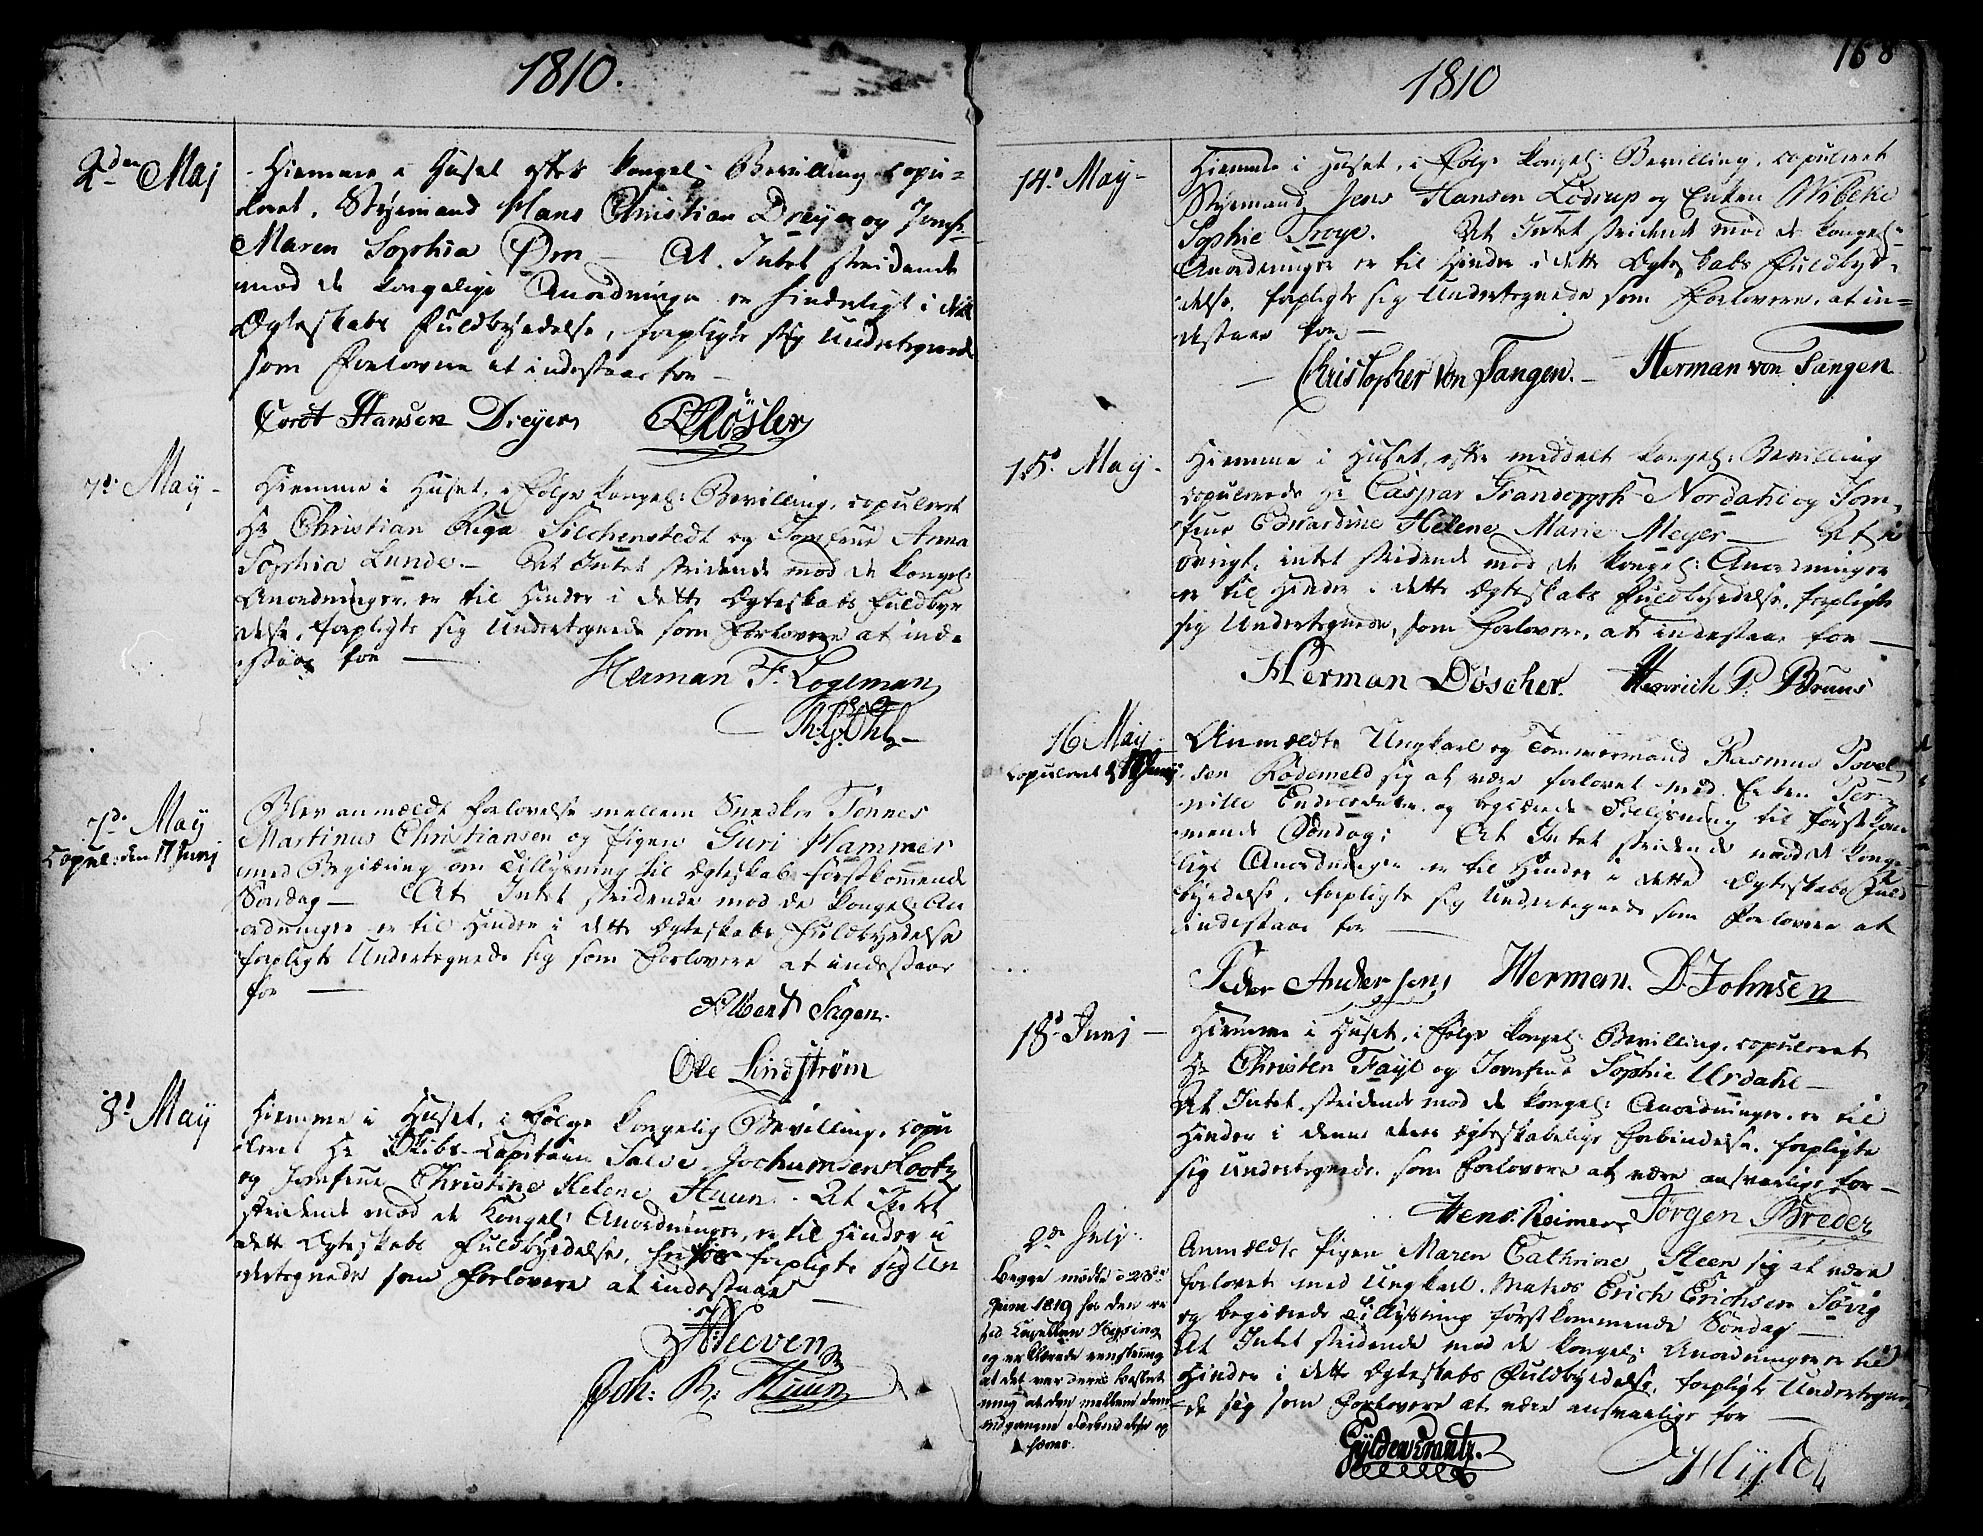 1810.
2den Maj
Hiemme i Huset efter kongel: Bevilling copu=
leret, Styrmand Hans Christian Dreyer og Jomfr:
Maren Sophia Örn — At Intet stridende
mod de kongelige Anordninger er hinderligt i dette
Ægteskabs Fuldbyrdelse, forpligte sig Undertegnede
som Forlovere at indestaae for —
Cordt Hansen Dreyer Rösler
7d: May –
Hiemme i Huset, i Følge kongel: Bevilling, copuleret
Hr Christian Riga Silchenstedt og Jomfrue Anna
Sophia Lunde — At Intet stridende mod de kongel:
Anordninger, er til Hinder i dette Ægteskabs Fuldbyr
delse, forpligte sig Undertegnede som Forlovere at inde
staae for —
Herman F. Logeman
7d: May
Copul: den 17 Junj
Blev anmældt Forlovelse mellem Snedker Tönnes
Martinus Christiansen og Pigen Guri Hammer
med Begiæring om Tillysning til Ægteskab förstkommende
Söndag — At Intet stridende mod de kongel: An
ordninger er til Hinder i dette Ægteskabs Fuldbyrdelse
forpligte Undertegnede sig som Forlovere at indestaae
for —
Albert Sagen.
Ole Lindström
8d May
Hiemme i Huset, i Følge kongelig Bevilling, copu
leret Hr Skibs-Capitain Salve Jochumsen Kootz
og Jomfrue Christine Helene Huun. At Intet
stridende mod de Kongel: Anordninger, er til Hinder i
dette Ægteskabs Fuldbyrdelse, forpligte sig Un
dertegnede som Forlovere at indestaae —
Joh: B: Huun
168
1810
14d May –
Hiemme i Huset, i Følge kongel: Bevilling, copuleret
Styrmand Jens Hansen Lödrup og Enken Wibeke
Sophie Troye. At Intet stridende mod de kongel:
Anordninger er til Hinder i dette Ægteskabs Fuldbyr=
delse, forpligte sig Undertegnede som Forlovere, at in=
destaae for —
— Christopher von Tangen. — Herman von Tangen
15d May –
Hiemme i Huset, efter meddelt kongel: Bevilling
copulerede Hr Caspar Nordahl og Jom
frue Edvardine Helene Marie Meyer — At i
övrigt, intet stridende mod de kongel: Anordninger
er til Hinder i dette Ægteskabs Fuldbyrdelse, forpligte
sig Undertegnede, som Forlovere, at indestaae for —
Herman Döscher. Henrich P. Bruns
16 May
Copuleret d 17 Junij
Anmældte Ungkarl og Tömmermand Rasmus Povel
sen Rödemeld sig at være forlovet med Enken Per
nille Endresdatter og begiærede Tillysning til förstkom
mende Söndag: At Intet stridende mod de konge
lige Anordninger er til Hinder i dette Ægteskabs Fuld
byrdelse, forpligte sig Undertegnede som Forlovere at
indestaae for —
Peder Andersen Herman. D. Johnsen
18d Junj —
Hiemme i Huset, i Følge kongel: Bevilling, copuleret
Hr Christen Faye og Jomfrue Sophie Urdahl —
At Intet stridende mod de kongel: Anordninger, er til
Hinder i denne deres ægteskabelige Forbindelse, forpligte
sig Undertegnede, som Forlovere at være ansvarlige for —
Henr: Reimers Jörgen Breder
2d July:
Begge mödte d 28de
Juni 1819 for den re
sid Capellan Hysing
og erklærede eenstemig
at det var deres beslut
ning at den mellem dem
indgangne Forbindelse og
hæves.
Anmældte Pigen Maren Cathrine Steen sig at være
forlovet med Ungkarl Mathias Erich Erichsen Sövig
og begiærede Tillysning förstkommende Söndag —
At Intet stridende mod de kongel: Anordninger er til
Hinder i dette Ægteskabs Fuldbyrdelse, forpligte Undertegne
de sig som Forlovere at være ansvarlige for —
Gyldenkrantz.